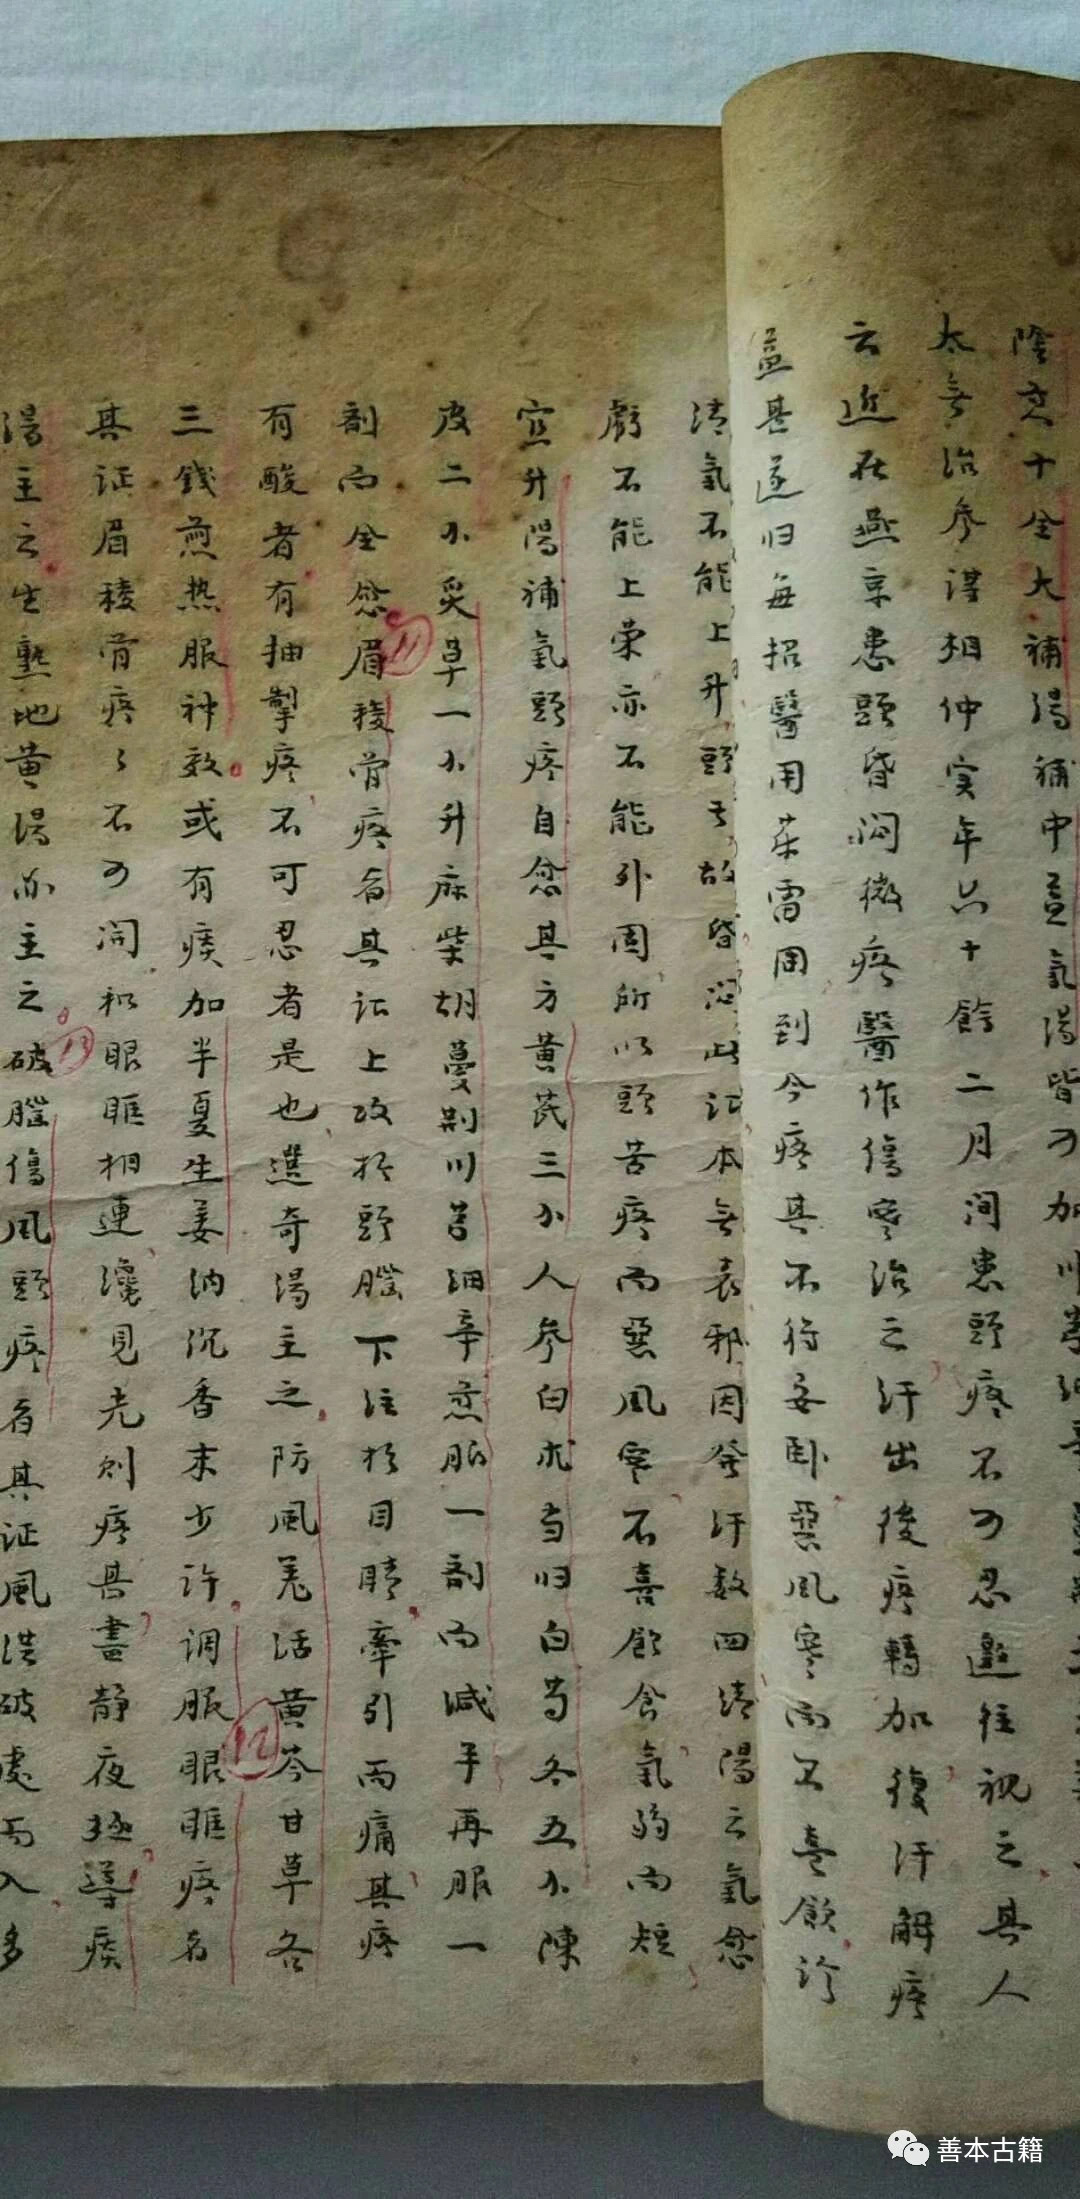 陰虚十全大補湯補中益氣湯皆可加川芎細辛
太無治參謀相仲实年六十餘二月间患頭疼不可忍邀往視之其人
云近在燕京患頭昏闷微疼醫作傷寒治之汗出後疼轉加復汗解疼
益甚遂归每招醫用茶雷同到今疼甚不得安卧恶風寒而不喜飲诊
清氣不能上升頭々故昏闷此证本無表邪因發汗数四清陽之氣愈
虧不能上荣亦不能外固所以頭苦疼而惡風寒不喜飲食氣弱而短
宜升陽補氣頭疼自愈其方黄芪三小人參白朮当归白芍各五小陳
皮二小炙草一小升麻柴胡蔓荆川芎细辛煎服一劑而減半再服一
劑而全愈眉稜骨疼者其证上攻於頭腦下注於目睛牽引而痛其疼
有酸者有抽掣疼不可忍者是也選奇湯主之防風羌活黄芩甘草各
三錢煎热服神效或有痰加半夏生姜纳沉香末少许调服眼眶疼者
其证眉稜骨疼々不可開和眼眶相連纔見光则疼甚晝静夜極導痰
湯主之生熟地黄湯亦主之破腦傷風頭疼者其证風從破處而入多
11
12
13
善本古籍